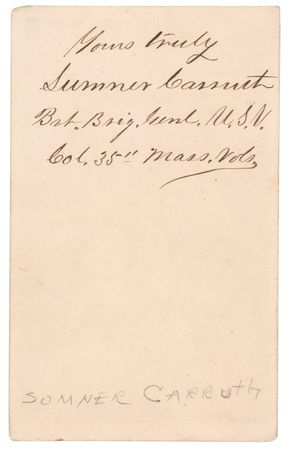 Yours truly
Sumner Carruth
Bvt. Brig. Genl. U.S.V.
Col. 35" Mass. Vols.
SOMNER CARRUTH